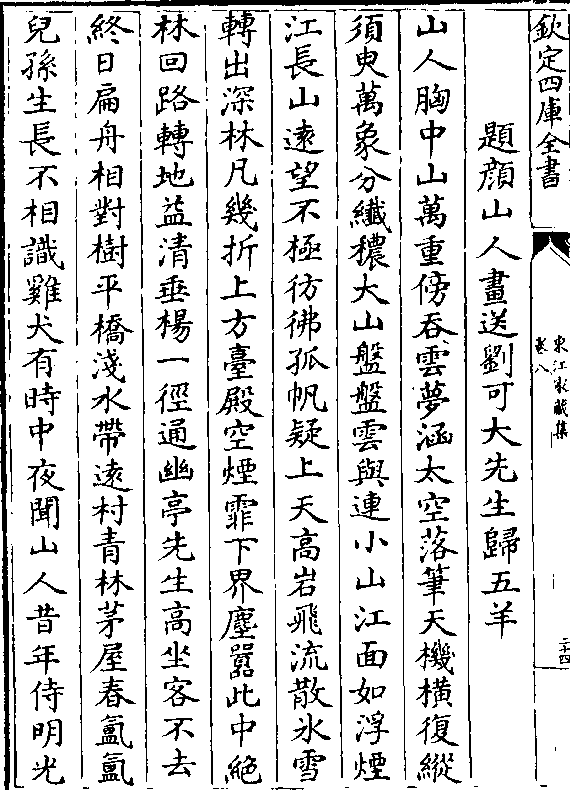 欽定四庫全書
東江家藏集
卷八
二十四
題顔山人畫送劉可大先生歸五羊
山人胸中山萬重傍吞雲夢涵太空落筆天機橫復縱
須臾萬象分纖穠大山盤盤雲與連小山江面如浮煙
江長山遠望不極彷彿孤帆疑上天高岩飛流散氷雪
轉出深林凡幾折上方臺殿空煙霏下界塵囂此中絶
林回路轉地益清垂楊一徑通幽亭先生高坐客不去
終日扁舟相對樹平橋淺水帶遠村青林茅屋春氳氳
兒孫生長不相識雞犬有時中夜聞山人昔年侍明光